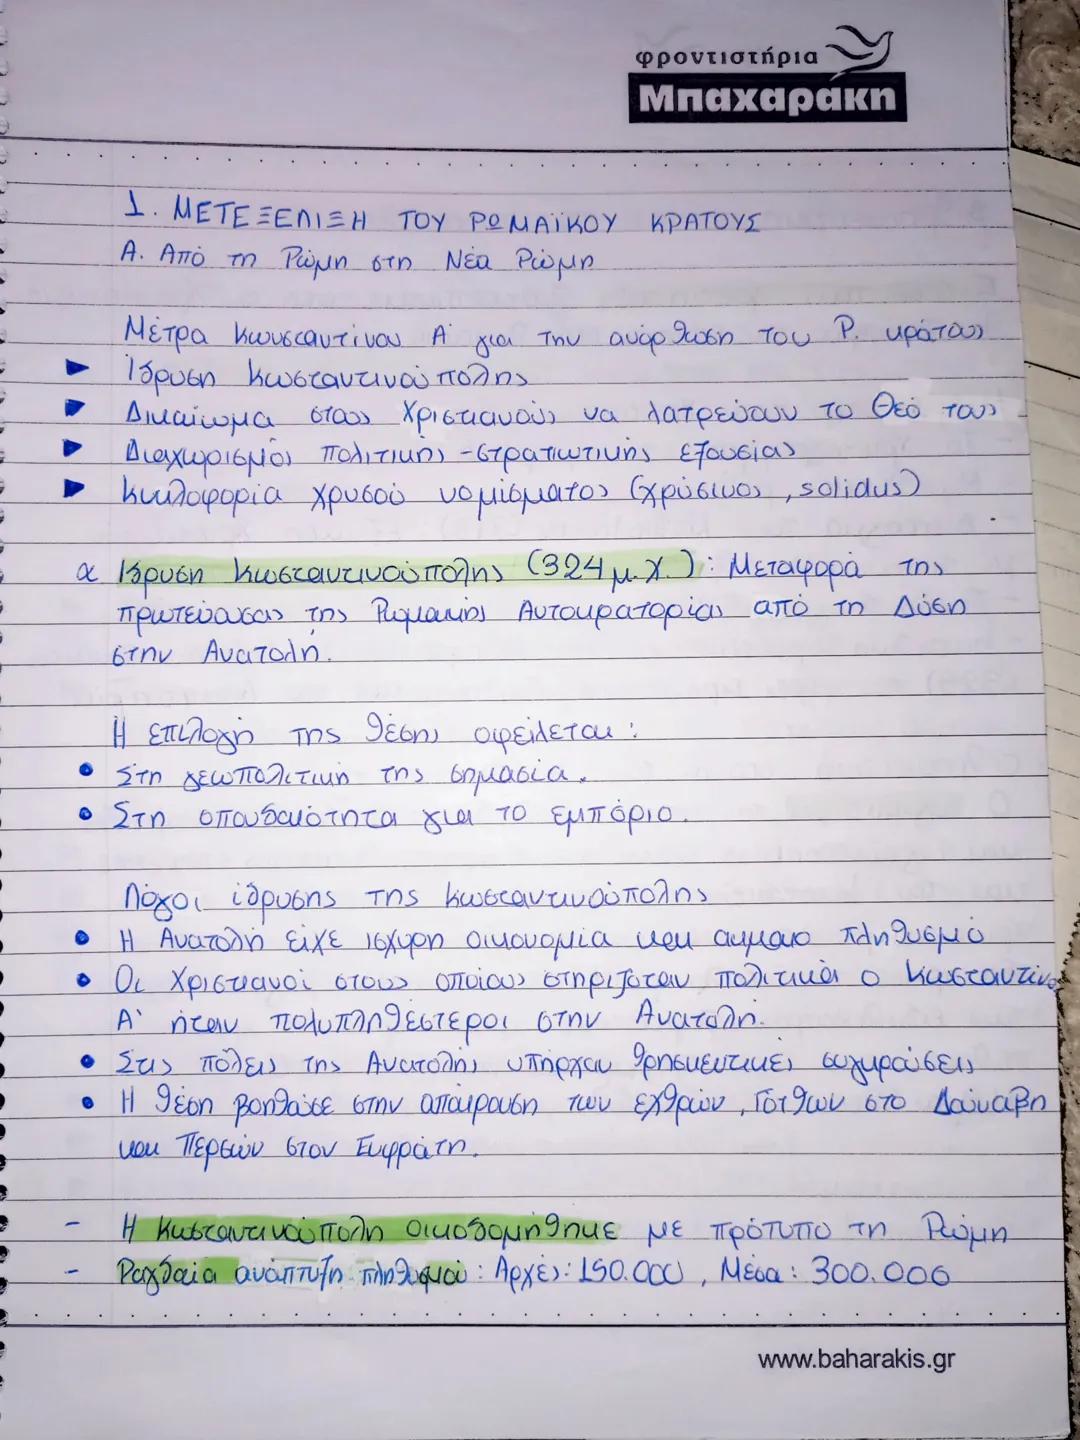 φροντιστήρια
Μπαχαράκη
1. ΜΕΤΕΞΕΛΙΞΗ ΤΟΥ ΡΩΜΑΪΚΟΥ ΚΡΑΤΟΥΣ
Α. Από τη Ρώμη στη Νέα Ρώμη
Μέτρα Κωνσταντίνου Α' για την ανόρθωση του Ρ. κράτους
Ίδρυση Κωσταντινούπολης
Δικαίωμα στους Χριστιανούς να λατρεύουν το Θεό τους
Διαχωρισμός πολιτικής - στρατιωτικής εξουσίας
Κυκλοφορία χρυσού νομίσματος (χρύσινος, solidus)
α Ίδρυση Κωσταντινούπολης (324 μ.Χ.): Μεταφορά της
πρωτεύουσας της Ρωμαικής Αυτοκρατορίας από τη Δύση
στην Ανατολή.
Η επιλογή της θέσης οφείλεται:
Στη γεωπολιτική της σημασία.
Στη σπουδαιότητα για το εμπόριο.
Λόγοι ίδρυσης της Κωσταντινούπολης
Η Ανατολή είχε ισχυρη οικονομία και ακμαιο πληθυσμό
Οι Χριστιανοί στους οποίους στηριζόταν πολιτικά ο Κωσταντίνος
Α' ήταν πολυπληθέστεροι στην Ανατολή.
Στις πόλεις της Ανατολής υπήρχαν θρησκευτικές συγκρούσεις
Η θέση βοηθούσε στην απόκρουση των εχθρών, Γότθων στο Δούναβη
και Περσών στον Ευφράτη.
- Η Κωσταντινούπολη οικοδομήθηκε με πρότυπο τη Ρώμη
- Ραγδαία ανάπτυξη πληθυσμού: Αρχές: 150.000, Μέσα: 300.000
www.baharakis.gr